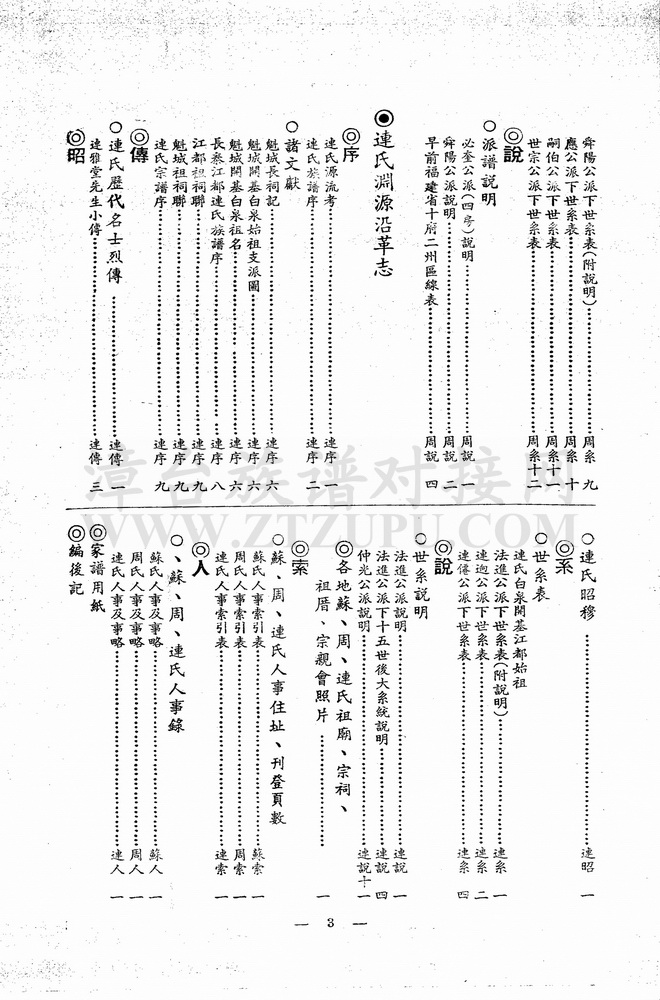 舜陽公派下世系表(附說明)……周系 九
應公派下世系表……周系 十
嗣伯公派下世系表……周系十一
世宗公派下世系表……周系十二
◎說
○派譜說明
必奎公派(四房)說明……周說 一
舜陽公派說明……周說 二
早前福建省十府二州區線表……周說 四
◉連氏淵源沿革志
◎序
連氏源流考……連序 一
連氏族譜序……連序 二
○諸文獻
魁城長祠記……連序 六
魁城開基白泉始祖支派圖……連序 六
魁城開基白泉祖名……連序 六
長泰江都連氏族譜序……連序 八
江都祖祠聯……連序 九
魁城祖祠聯……連序 九
連氏宗譜序……連序 九
◎傳
○連氏歷代名士烈傳……連傳 一
連雅堂先生小傳……連傳 三
◎昭
○連氏昭穆……連昭 一
◎系
○世系表
連氏白泉開基江都始祖
法進公派下世系表(附說明)……連系 一
連迥公派下世系表……連系 二
連傳公派下世系表……連系 四
◎說
○世系說明
法進公派說明……連說 一
法進公派下十五世後大系統說明……連說 四
仲光公派說明……連說十一
◎各地蘇、周、連氏祖廟、宗祠、
祖厝、宗親會照片……一
◎索
○蘇、周、連氏人事住址、刊登頁數
蘇氏人事索引表……蘇索 一
周氏人事索引表……周索 一
連氏人事索引表……連索 一
◎人
○、蘇、周、連氏人事錄
蘇氏人事及事略……蘇人 一
周氏人事及事略……周人 一
連氏人事及事略……連人 一
◎家譜用紙
◎編後記
— 3 —
漳台族谱对接网
WWW.ZTZUPU.COM